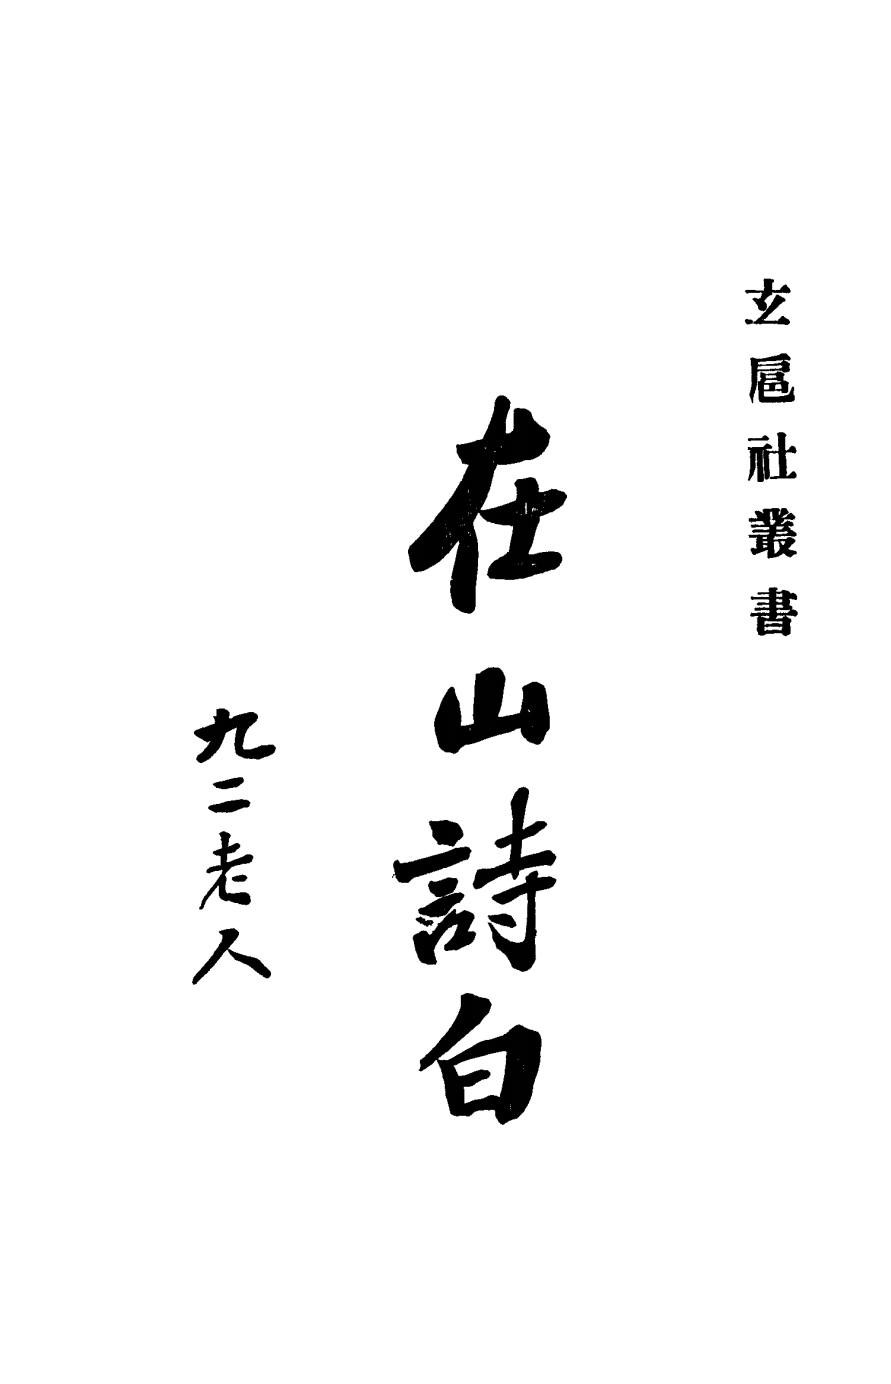 玄扈社叢書
在山詩白
九二老人